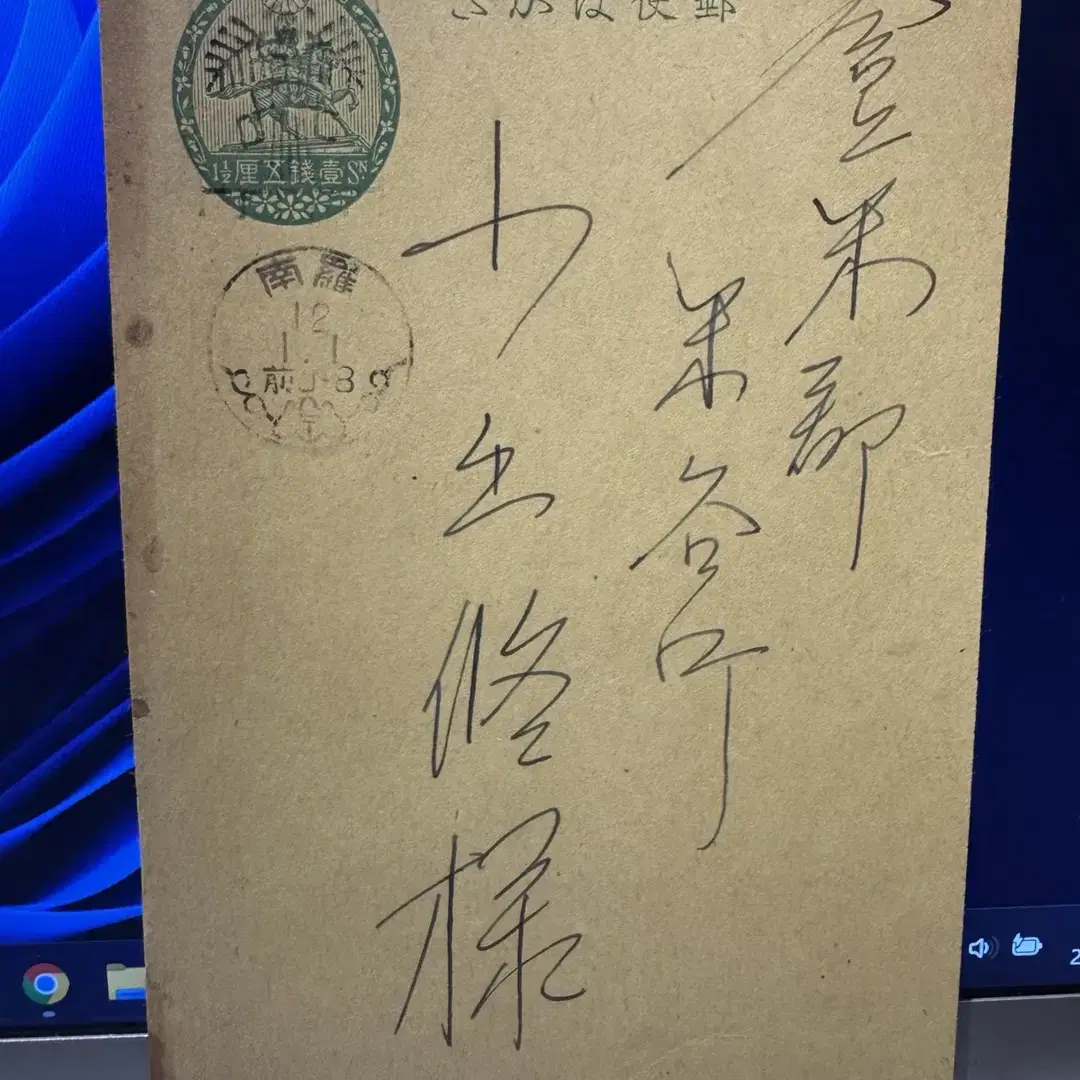 郵便はかき
壹錢五厘
1½ SN
羅南
12
1.1
前0-8
登米郡
米谷町
修様